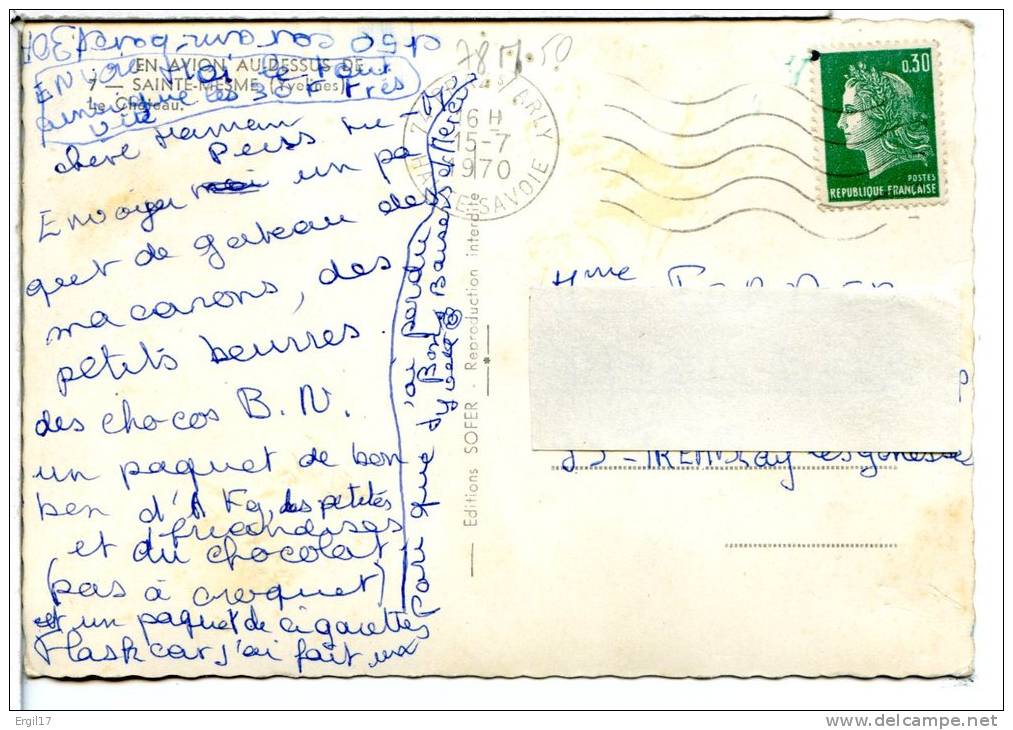 et 50 car
EN AVION AU-DESSUS DE...
7 — SAINTE-MESME (Yvelines)
Le Château.
Envoie moi le tout
ainsi que les 30 F très
vite
chère Maman
Envoyer un pa
quet de gateau des
macarons, des
petits beurres.
des chocos B.N.
un paquet de bon
bon d'1 Kg, des petites
friandises
et du chocolat
(pas à croquet)
et un paquet de cigarettes
Flask car j'ai fait un
Pari que j'ai perdu
Bons Baisers et Merci
Editions SOFER - Reproduction interdite
78
50
ARLY
6 H
15-7
1970
HAUTE-SAVOIE
0.30
POSTES
REPUBLIQUE FRANÇAISE
Mme
Ergil17
delcampe.net